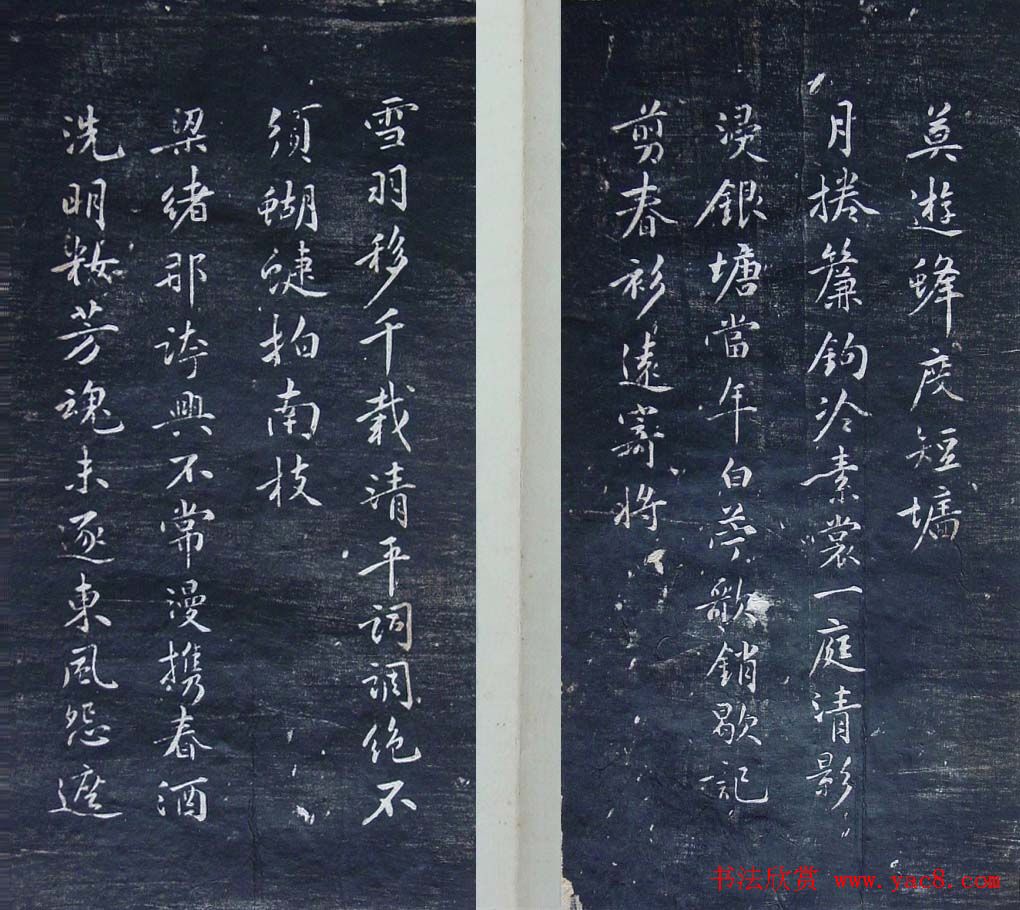 莫遊蜂度短墻
月捲簾鉤冷素裳一庭清影
浸銀塘當年白苧歌銷歇記
剪春衫遠寄將
雪羽移千栽清平詞調絶不
須蝴蜨拍南枝
梁緒那誇興不常漫攜春酒
洗明粧芳魂未逐東風怨遮
书法欣赏 www.yac8.com